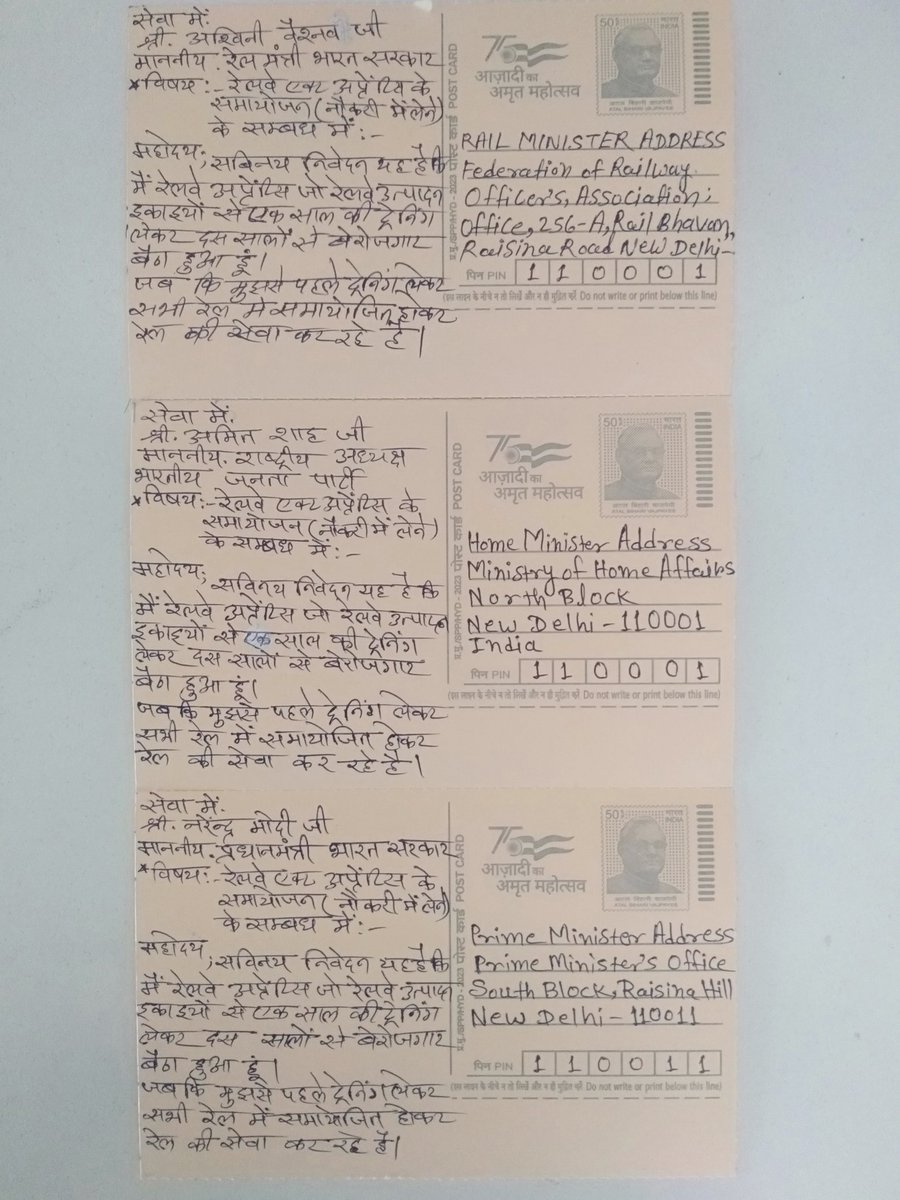 सेवा में.
श्री. अश्विनी वैश्नव जी
माननीय. रेल मंत्री भारत सरकार
*विषय:- रेलवे एक्ट अप्रेंटिस के
समायोजन (नौकरी में लेने)
के सम्बध में:-
महोदय;
सविनय निवेदन यह है कि
मैं रेलवे अप्रेंटिस जो रेलवे उत्पादन
इकाइयों से एक साल की ट्रेनिंग
लेकर दस सालों से बेरोजगार
बैठा हुआ हूं।
जब कि मुझसे पहले ट्रेनिंग लेकर
सभी रेल में समायोजित होकर
रेल की सेवा कर रहे हैं।
पोस्ट कार्ड POST CARD
प्र.मु./SPP/HYD - 2023
आज़ादी का
अमृत महोत्सव
50
भारत
INDIA
अटल बिहारी वाजपेयी
ATAL BIHARI VAJPAYEE
RAIL MINISTER ADDRESS
Federation of Railway
Officer's, Association;
Office, 256-A, Rail Bhavan,
Raisina Road New Delhi-
पिन PIN 1 1 0 0 0 1
(इस लाइन के नीचे न तो लिखें और न ही मुद्रित करें Do not write or print below this line)
सेवा में.
श्री. अमित शाह जी
माननीय. राष्ट्रीय अध्यक्ष
भारतीय जनता पार्टी
*विषय:- रेलवे एक्ट अप्रेंटिस के
समायोजन (नौकरी में लेने)
के सम्बध में:-
महोदय;
सविनय निवेदन यह है कि
मैं रेलवे अप्रेंटिस जो रेलवे उत्पादन
इकाइयों से एक साल की ट्रेनिंग
लेकर दस सालों से बेरोजगार
बैठा हुआ हूं।
जब कि मुझसे पहले ट्रेनिंग लेकर
सभी रेल में समायोजित होकर
रेल की सेवा कर रहे है।
पोस्ट कार्ड POST CARD
प्र.मु./SPP/HYD - 2023
आज़ादी का
अमृत महोत्सव
50
भारत
INDIA
अटल बिहारी वाजपेयी
ATAL BIHARI VAJPAYEE
Home Minister Address
Ministry of Home Affairs
North Block
New Delhi - 110001
India
पिन PIN 1 1 0 0 0 1
(इस लाइन के नीचे न तो लिखें और न ही मुद्रित करें Do not write or print below this line)
सेवा में.
श्री. नरेन्द्र मोदी जी
माननीय. प्रधानमंत्री भारत सरकार
*विषय:- रेलवे एक्ट अप्रेंटिस के
समायोजन (नौकरी में लेने)
के सम्बध में:-
महोदय
;सविनय निवेदन यह है कि
मैं रेलवे अप्रेंटिस जो रेलवे उत्पादन
इकाइयों से एक साल की ट्रेनिंग
लेकर दस सालों से बेरोजगार
बैठा हुआ हूं।
जब कि मुझसे पहले ट्रेनिंग लेकर
सभी रेल में समायोजित होकर
रेल की सेवा कर रहे है।
पोस्ट कार्ड POST CARD
प्र.मु./SPP/HYD - 2023
आज़ादी का
अमृत महोत्सव
50
भारत
INDIA
अटल बिहारी वाजपेयी
ATAL BIHARI VAJPAYEE
Prime Minister Address
Prime Minister's Office
South Block, Raisina Hill
New Delhi - 110011
पिन PIN 1 1 0 0 1 1
(इस लाइन के नीचे न तो लिखें और न ही मुद्रित करें Do not write or print below this line)